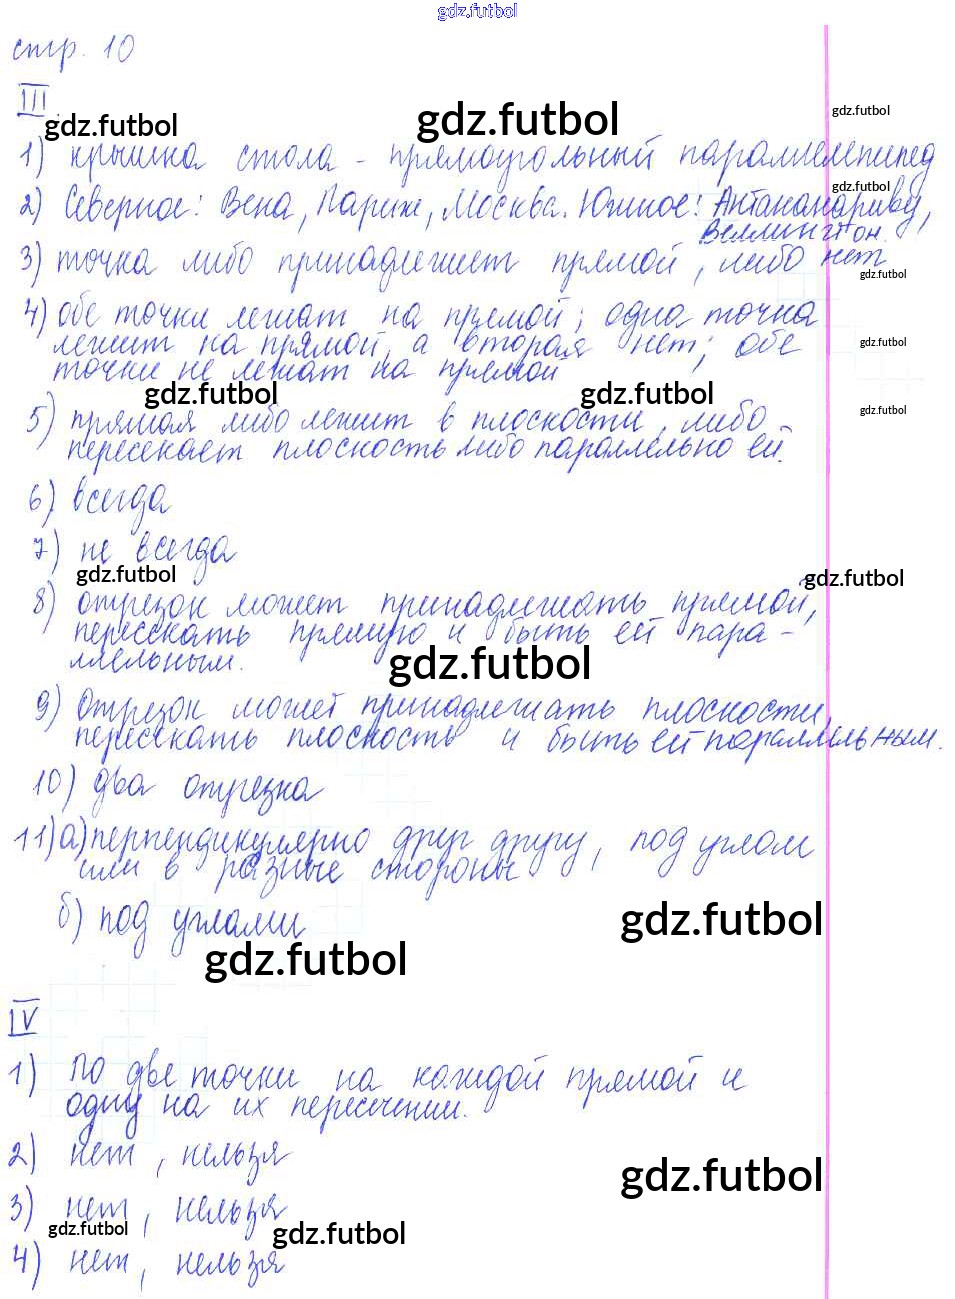 gdz.futbol
стр. 10
III
gdz.futbol
gdz.futbol
gdz.futbol
1) крышка стола - прямоугольный параллелепипед
gdz.futbol
2) Северное: Вена, Париж, Москва. Южное: Антананариву,
Веллингтон.
3) точка либо принадлежит прямой, либо нет
gdz.futbol
4) обе точки лежат на прямой; одна точка
лежит на прямой, а вторая нет; обе
gdz.futbol
точки не лежат на прямой
gdz.futbol
gdz.futbol
gdz.futbol
5) прямая либо лежит в плоскости, либо
пересекает плоскость либо параллельно ей.
6) всегда
7) не всегда
gdz.futbol
gdz.futbol
8) отрезок может принадлежать прямой,
пересекать прямую и быть ей пара-
ллельным.
gdz.futbol
9) Отрезок может принадлежать плоскости,
пересекать плоскость и быть ей параллельным.
10) два отрезка
11) а) перпендикулярно друг другу, под углом
или в разные стороны
б) под углами
gdz.futbol
gdz.futbol
IV
1) По две точки на каждой прямой и
одну на их пересечении.
2) нет, нельзя
gdz.futbol
3) нет, нельзя
gdz.futbol
gdz.futbol
4) нет, нельзя